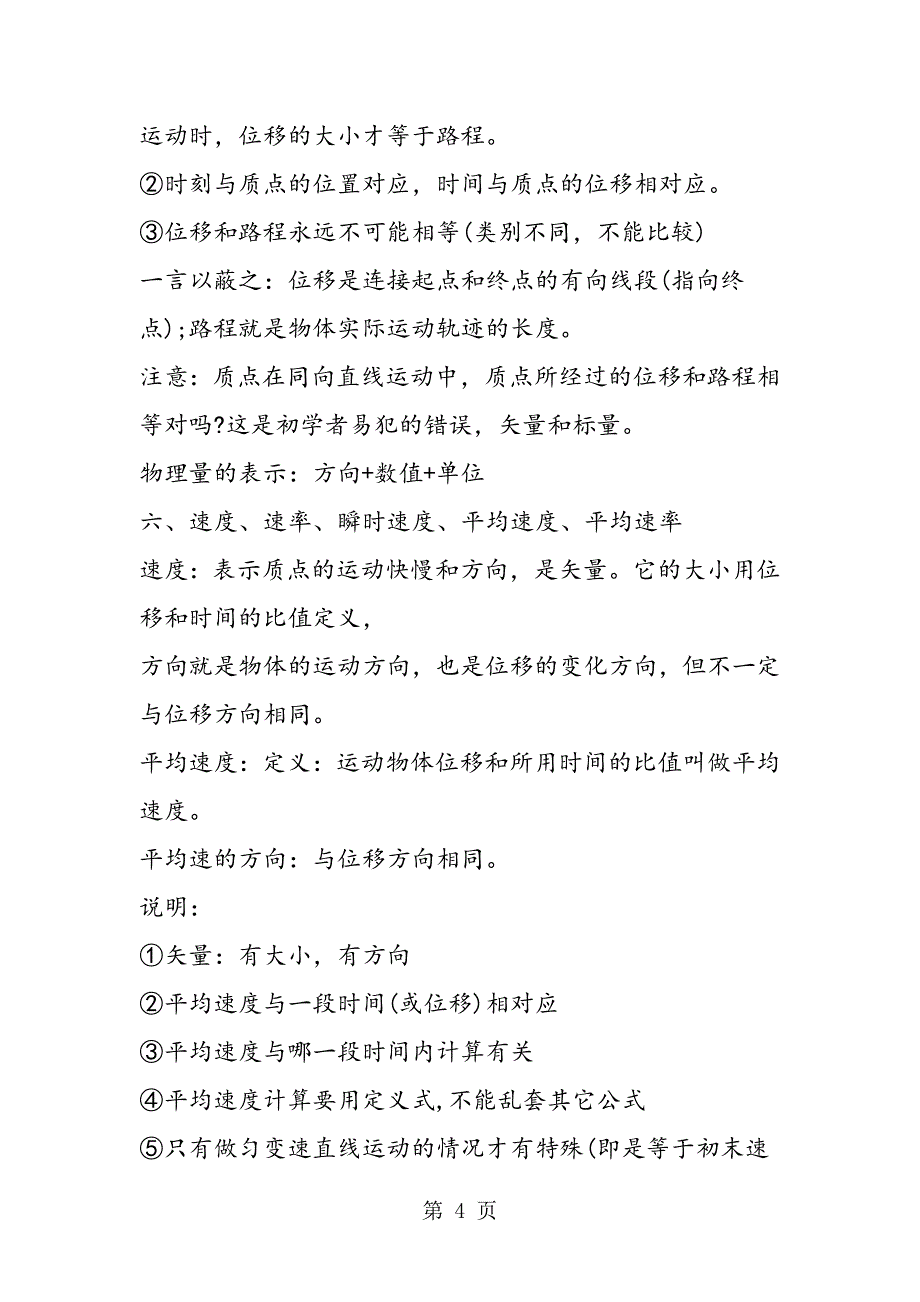 运动时，位移的大小才等于路程。
②时刻与质点的位置对应，时间与质点的位移相对应。
③位移和路程永远不可能相等(类别不同，不能比较)
一言以蔽之：位移是连接起点和终点的有向线段(指向终
点);路程就是物体实际运动轨迹的长度。
注意：质点在同向直线运动中，质点所经过的位移和路程相
等对吗?这是初学者易犯的错误，矢量和标量。
物理量的表示：方向+数值+单位
六、速度、速率、瞬时速度、平均速度、平均速率
速度：表示质点的运动快慢和方向，是矢量。它的大小用位
移和时间的比值定义，
方向就是物体的运动方向，也是位移的变化方向，但不一定
与位移方向相同。
平均速度：定义：运动物体位移和所用时间的比值叫做平均
速度。
平均速的方向：与位移方向相同。
说明：
①矢量：有大小，有方向
②平均速度与一段时间(或位移)相对应
③平均速度与哪一段时间内计算有关
④平均速度计算要用定义式,不能乱套其它公式
⑤只有做匀变速直线运动的情况才有特殊(即是等于初末速
第 4 页